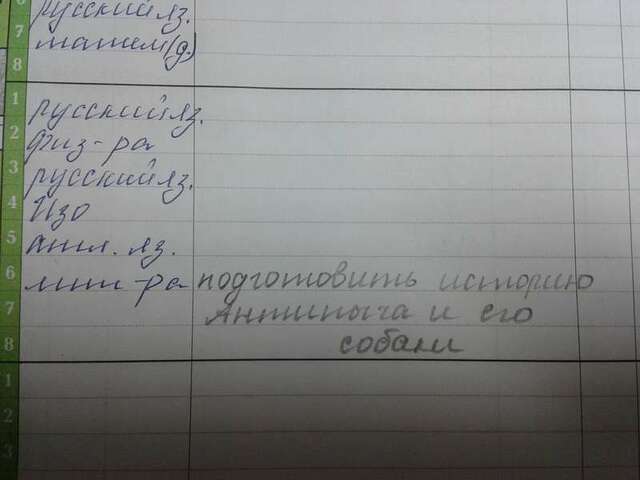 6
русский яз.
7
матем (д.)
8
1
русский яз.
2
физ-ра
3
русский яз.
4
Изо
5
англ. яз.
6
лит-ра подготовить историю
7
Антипыча и его
8
собаки
1
2
3